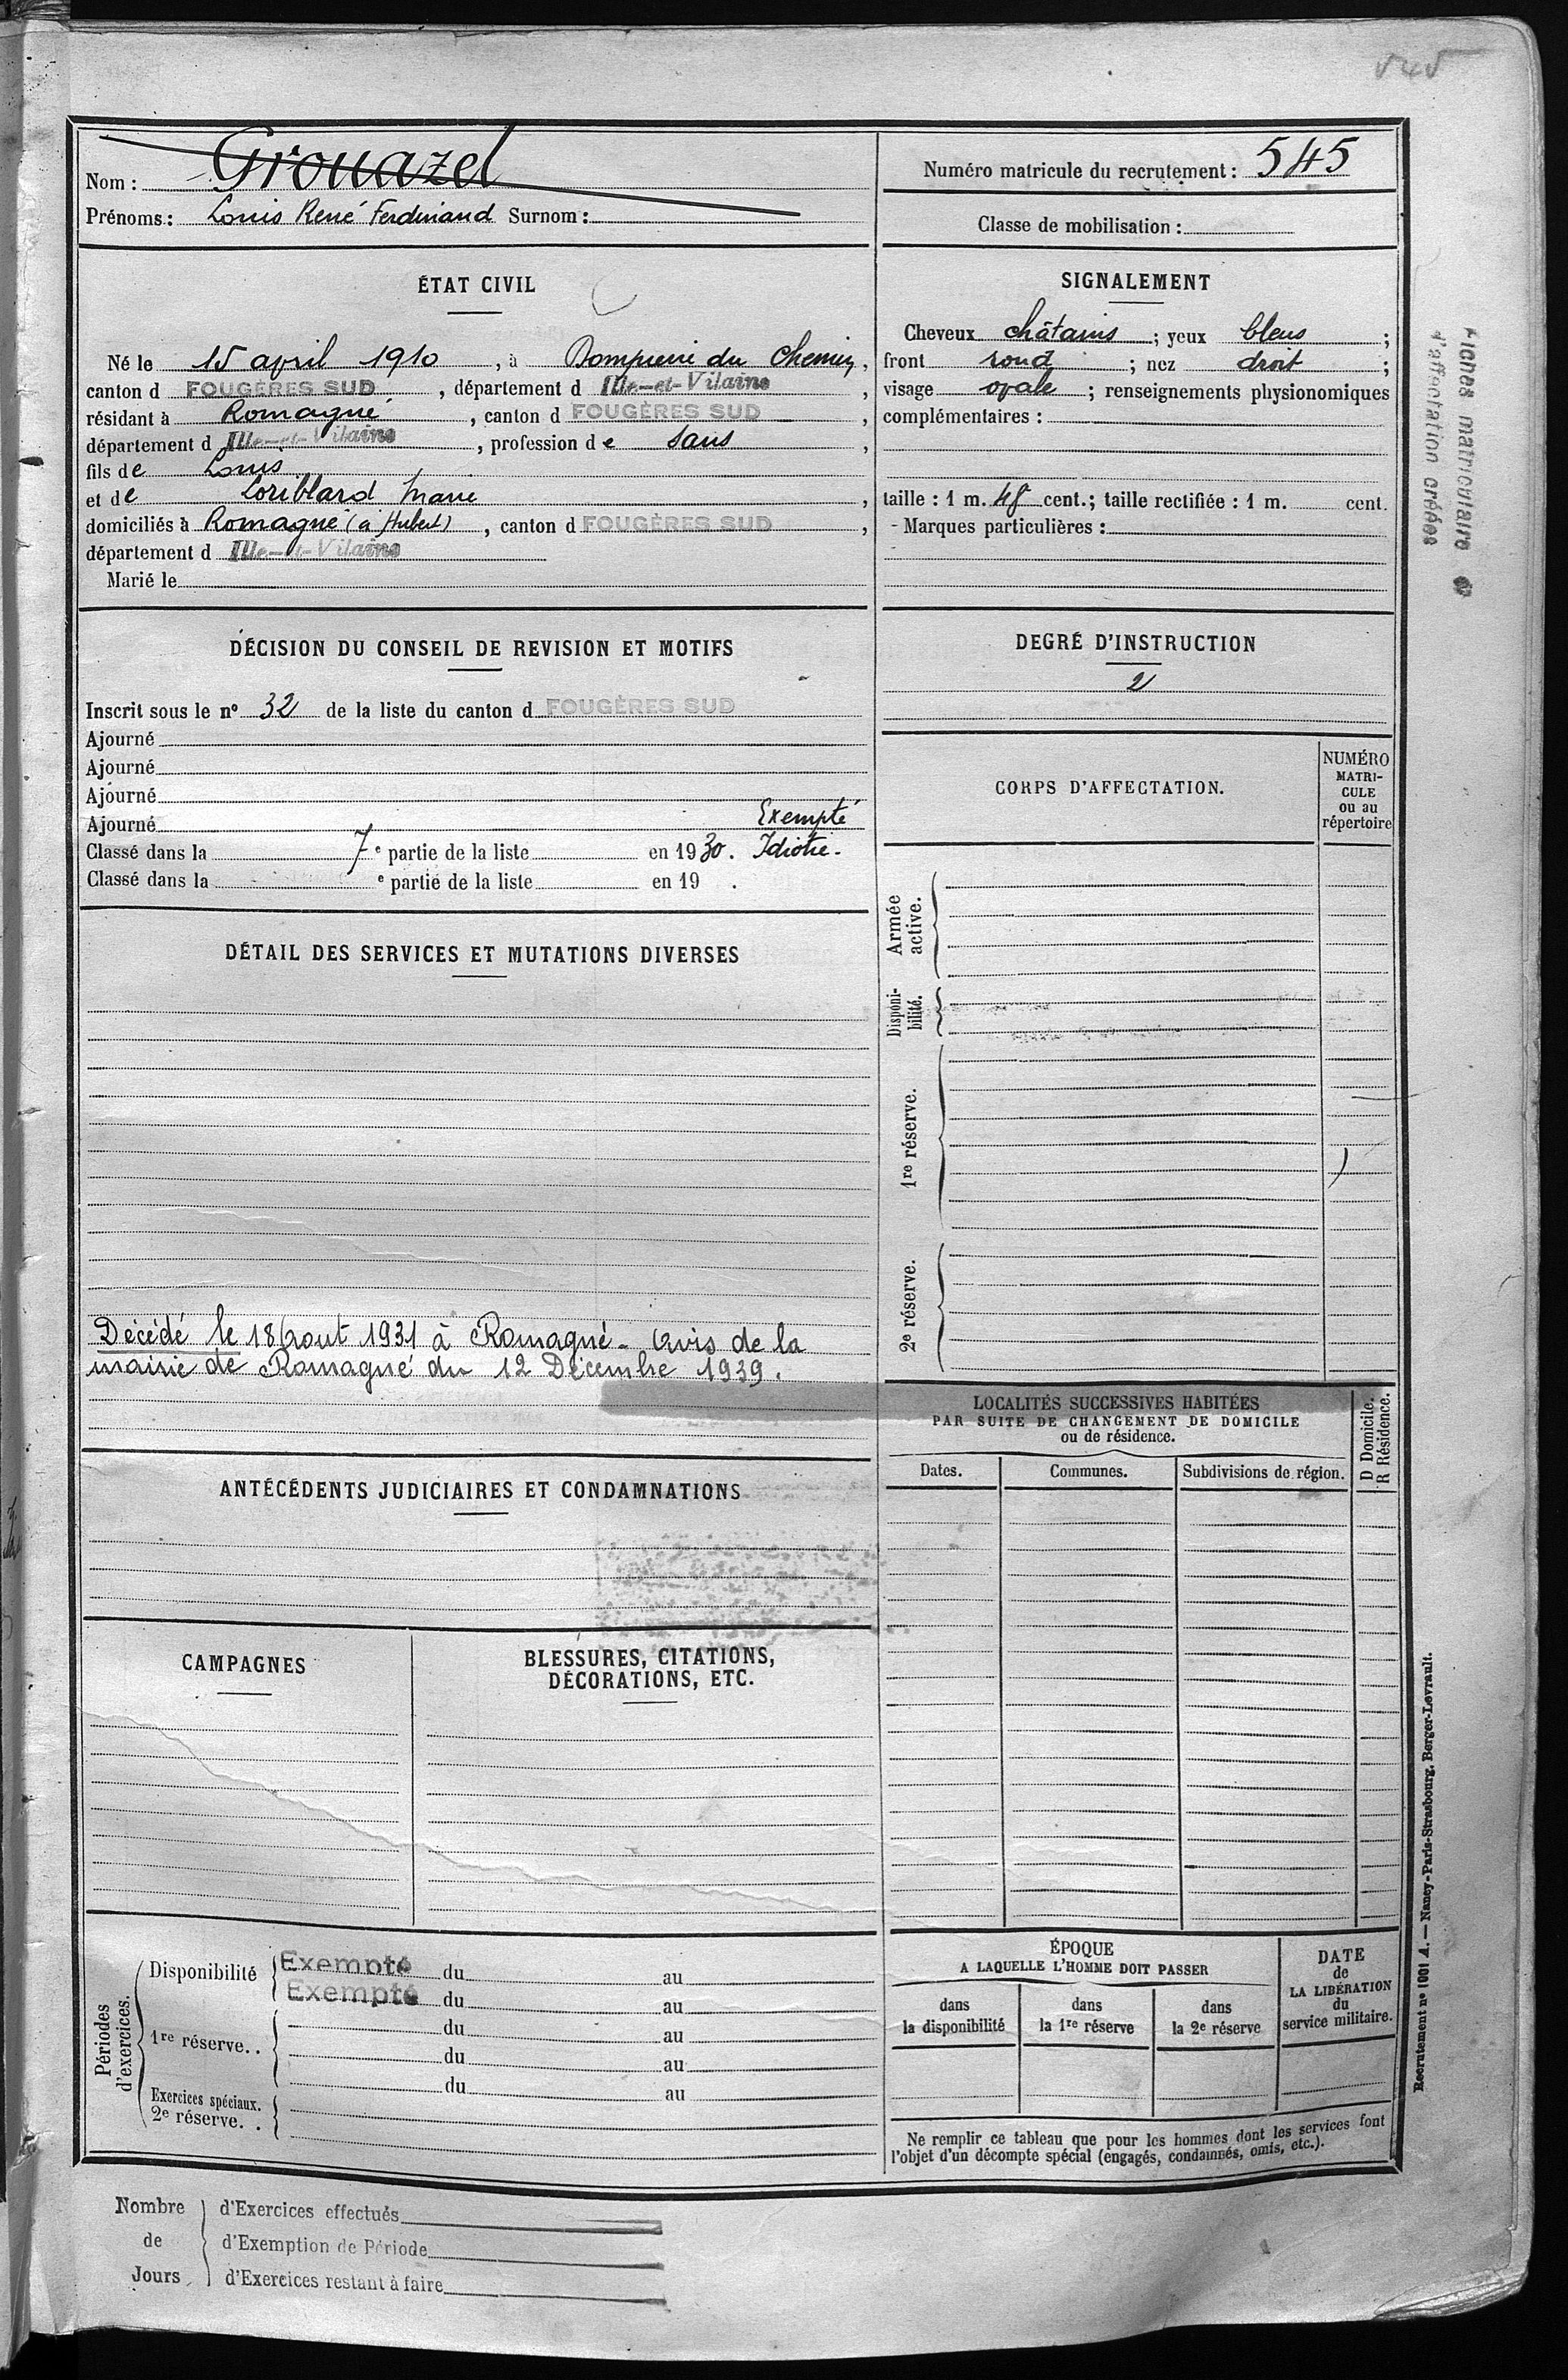 545
Nom : Grouazel
Prénoms : Louis René Ferdinand Surnom :
Numéro matricule du recrutement : 545
Classe de mobilisation :
ÉTAT CIVIL
Né le 15 avril 1910, à Dompierre du Chemin,
canton d FOUGÈRES SUD, département d Ille-et-Vilaine,
résidant à Romagné, canton d FOUGÈRES SUD,
département d Ille-et-Vilaine, profession de sans,
fils de Louis
et de Loriblard Marie,
domiciliés à Romagné (à Hubert), canton d FOUGÈRES SUD,
département d Ille-et-Vilaine
Marié le
SIGNALEMENT
Cheveux châtains ; yeux bleus ;
front rond ; nez droit ;
visage ovale ; renseignements physionomiques
complémentaires :
taille : 1 m. 48 cent. ; taille rectifiée : 1 m. cent.
- Marques particulières :
Fiches matriculaire et
d'affectation créées
DÉCISION DU CONSEIL DE REVISION ET MOTIFS
Inscrit sous le nº 32 de la liste du canton d FOUGÈRES SUD
Ajourné
Ajourné
Ajourné
Ajourné Exempté
Classé dans la 7e partie de la liste en 1930. Idiotie.
Classé dans la e partie de la liste en 19 .
DEGRÉ D'INSTRUCTION
2
CORPS D'AFFECTATION.
NUMÉRO
MATRI-
CULE
ou au
répertoire
Armée
active.
Disponi-
bilité.
1re réserve.
2e réserve.
DÉTAIL DES SERVICES ET MUTATIONS DIVERSES
Décédé le 18 Aout 1931 à Romagné - Avis de la
mairie de Romagné du 12 Décembre 1939.
LOCALITÉS SUCCESSIVES HABITÉES
PAR SUITE DE CHANGEMENT DE DOMICILE
ou de résidence.
Dates.
Communes.
Subdivisions de région.
D Domicile.
R Résidence.
ANTÉCÉDENTS JUDICIAIRES ET CONDAMNATIONS
CAMPAGNES
BLESSURES, CITATIONS,
DÉCORATIONS, ETC.
Périodes
d'exercices.
Disponibilité Exempté du au
Exempté du au
1re réserve.. du au
du au
du au
Exercices spéciaux.
2e réserve. .
ÉPOQUE
A LAQUELLE L'HOMME DOIT PASSER
dans
la disponibilité
dans
la 1re réserve
dans
la 2e réserve
DATE
de
LA LIBÉRATION
du
service militaire.
Ne remplir ce tableau que pour les hommes dont les services font
l'objet d'un décompte spécial (engagés, condamnés, omis, etc.).
Recrutement nº 1001 A. — Nancy-Paris-Strasbourg, Berger-Levrault.
Nombre
de
Jours
d'Exercices effectués
d'Exemption de Période
d'Exercices restant à faire